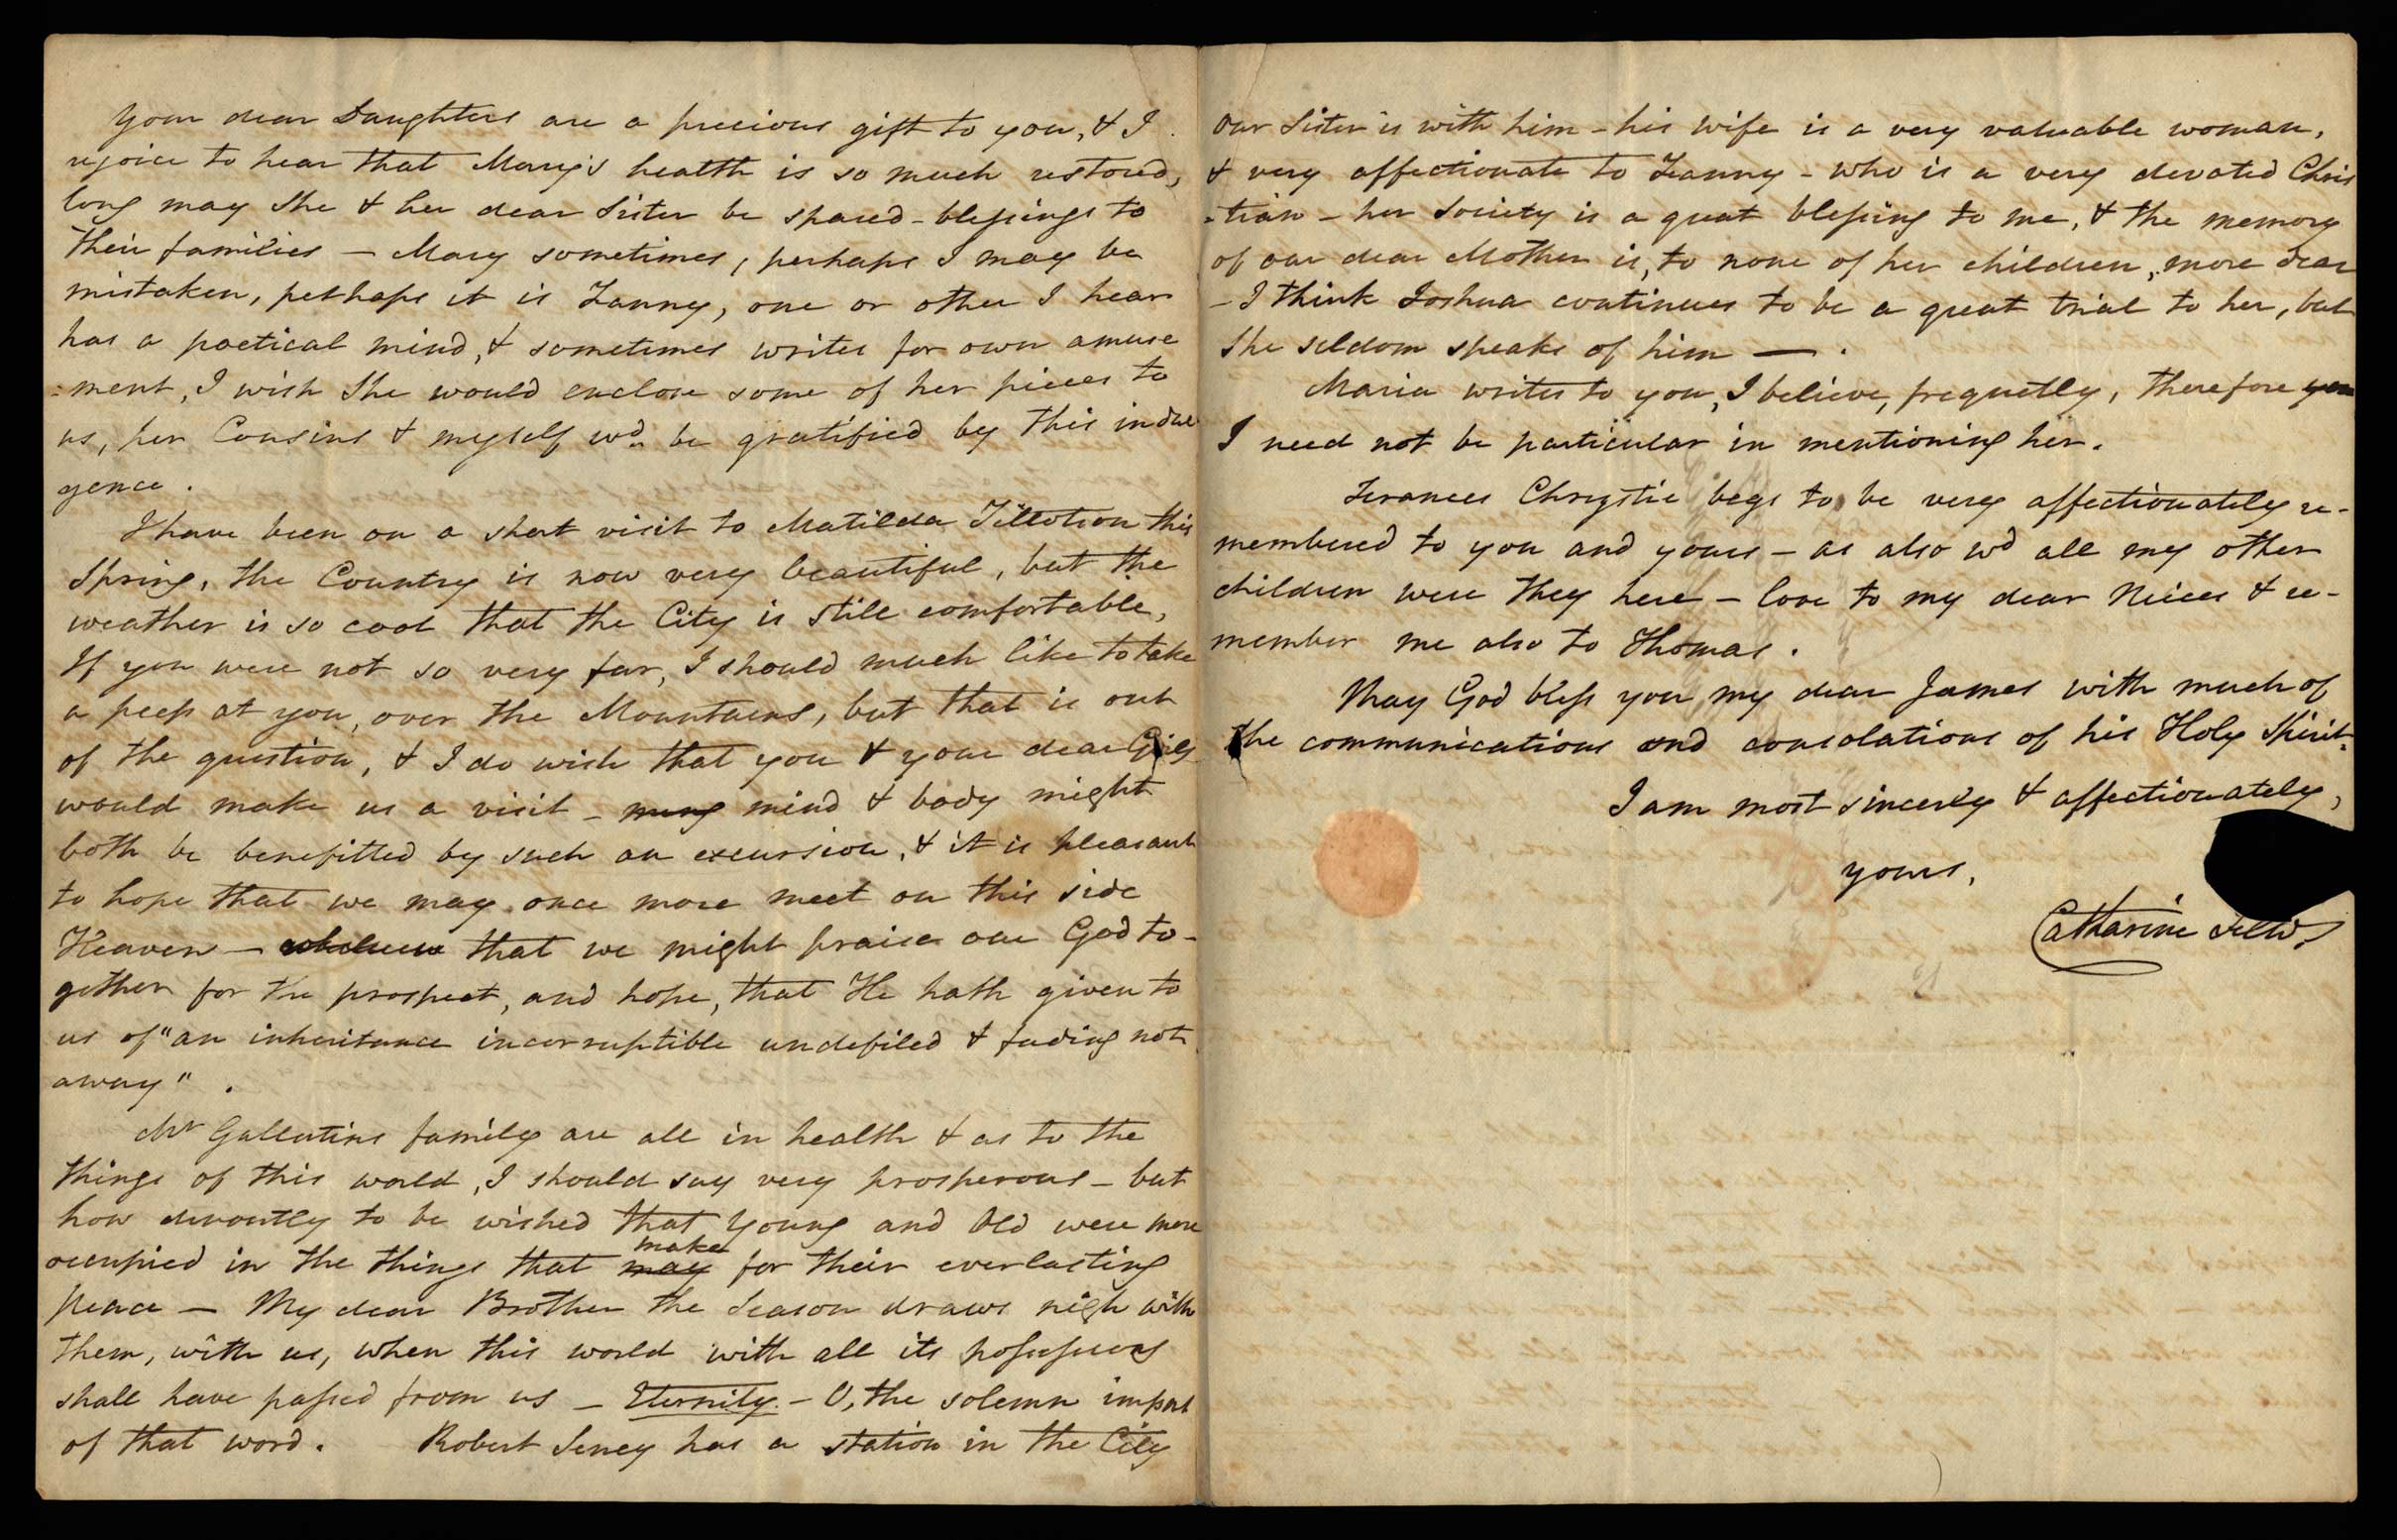 Your dear Daughters are a precious gift to you, & I
rejoice to hear that Mary's health is so much restored,
long may she & her dear Sister be spared - blessings to
their families — Mary sometimes, perhaps I may be
mistaken, perhaps it is Fanny, one or other I hear
has a poetical mind, & sometimes writes for own amuse
=ment, I wish she would enclose some of her pieces to
us, her Cousins & myself wd. be gratified by this indul
gence.
I have been on a short visit to Matilda Tillotson this
Spring, the Country is now very beautiful, but the
weather is so cool that the City is still comfortable,
If you were not so very far, I should much like to take
a peep at you, over the Mountains, but that is out
of the question, & I do wish that you & your dear Girls
would make us a visit - mind & body might
both be benefitted by such an excursion, & it is pleasant
to hope that we may once more meet on this side
Heaven — that we might praise our God to-
gether for the prospect, and hope, that He hath given to
us of "an inheritance incorruptible undefiled & fading not
away" .
Mr Gallatins family are all in health & as to the
things of this world, I should say very prosperous - but
how devoutly to be wished that Young and Old were more
occupied in the things that may make for their everlasting
peace — My dear Brother the Season draws nigh with
them, with us, when this world with all its possessions
shall have passed from us — Eternity. - O, the solemn import
of that word. Robert Seney has a station in the City
our Sister is with him - his wife is a very valuable woman,
& very affectionate to Fanny - who is a very devoted Chris
=tian - her society is a great blessing to me, & the memory
of our dear Mother is, to none of her children, more dear
- I think Joshua continues to be a great trial to her, but
she seldom speaks of him — .
Maria writes to you, I believe, frequetly, therefore you
I need not be particular in mentioning her.
Frances Chrystie begs to be very affectionately re-
membered to you and yours - as also wd all my other
children were they here - love to my dear Nieces & re-
member me also to Thomas.
May God bless you my dear James with much of
the communications and consolations of his Holy Spirit.
I am most sincerely & affectionately,
yours,
Catharine Few